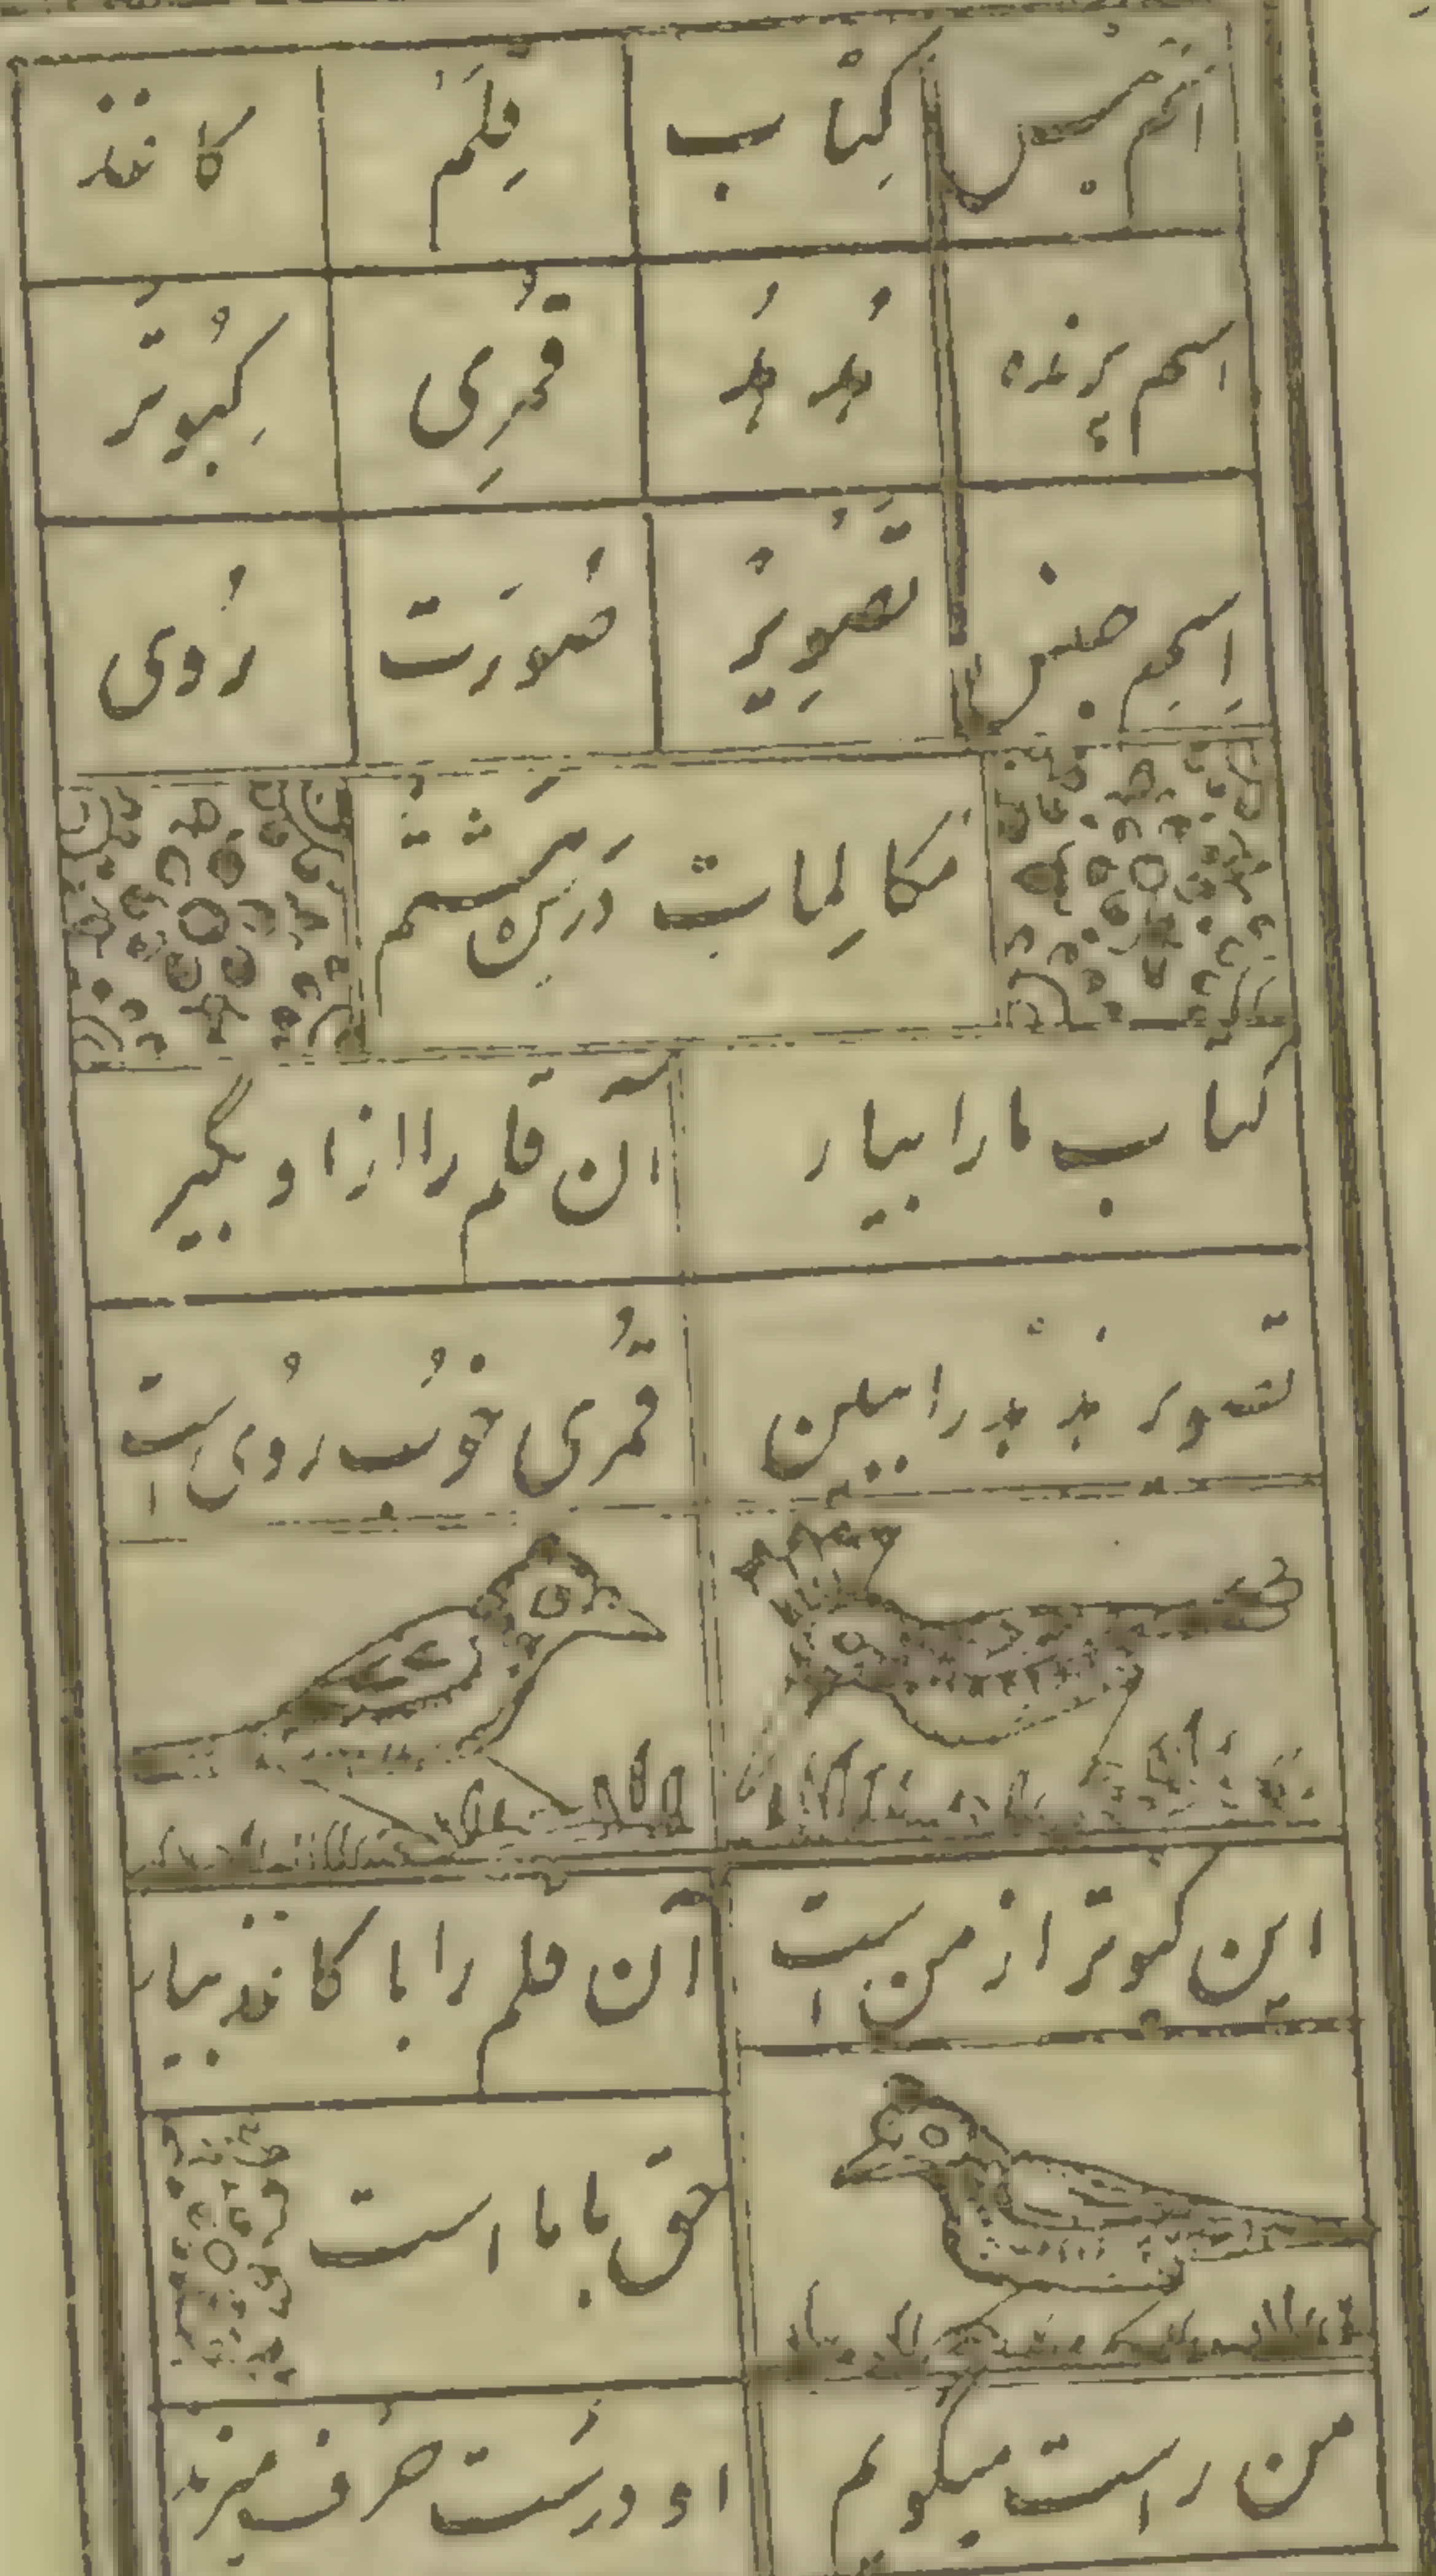 اسم جنس کتاب قلم کاغذ
اسم پرنده هدهد قمری کبوتر
اسم جنس تصویر صورت روی
مکالمات درس هشتم
کتاب ما را بیار آن قلم را از او بگیر
تصویر هدهد را ببین قمری خوب روی است
این کبوتر از من است آن قلم را با کاغذ بیار
حق با ما است
من راست میگویم او درست حرف میزند